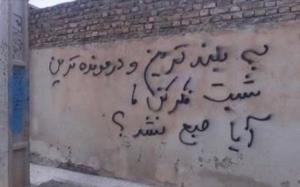 به بلند ترین و درمونده ترین
شبت فکر کن ما
آیا صبح نشد؟